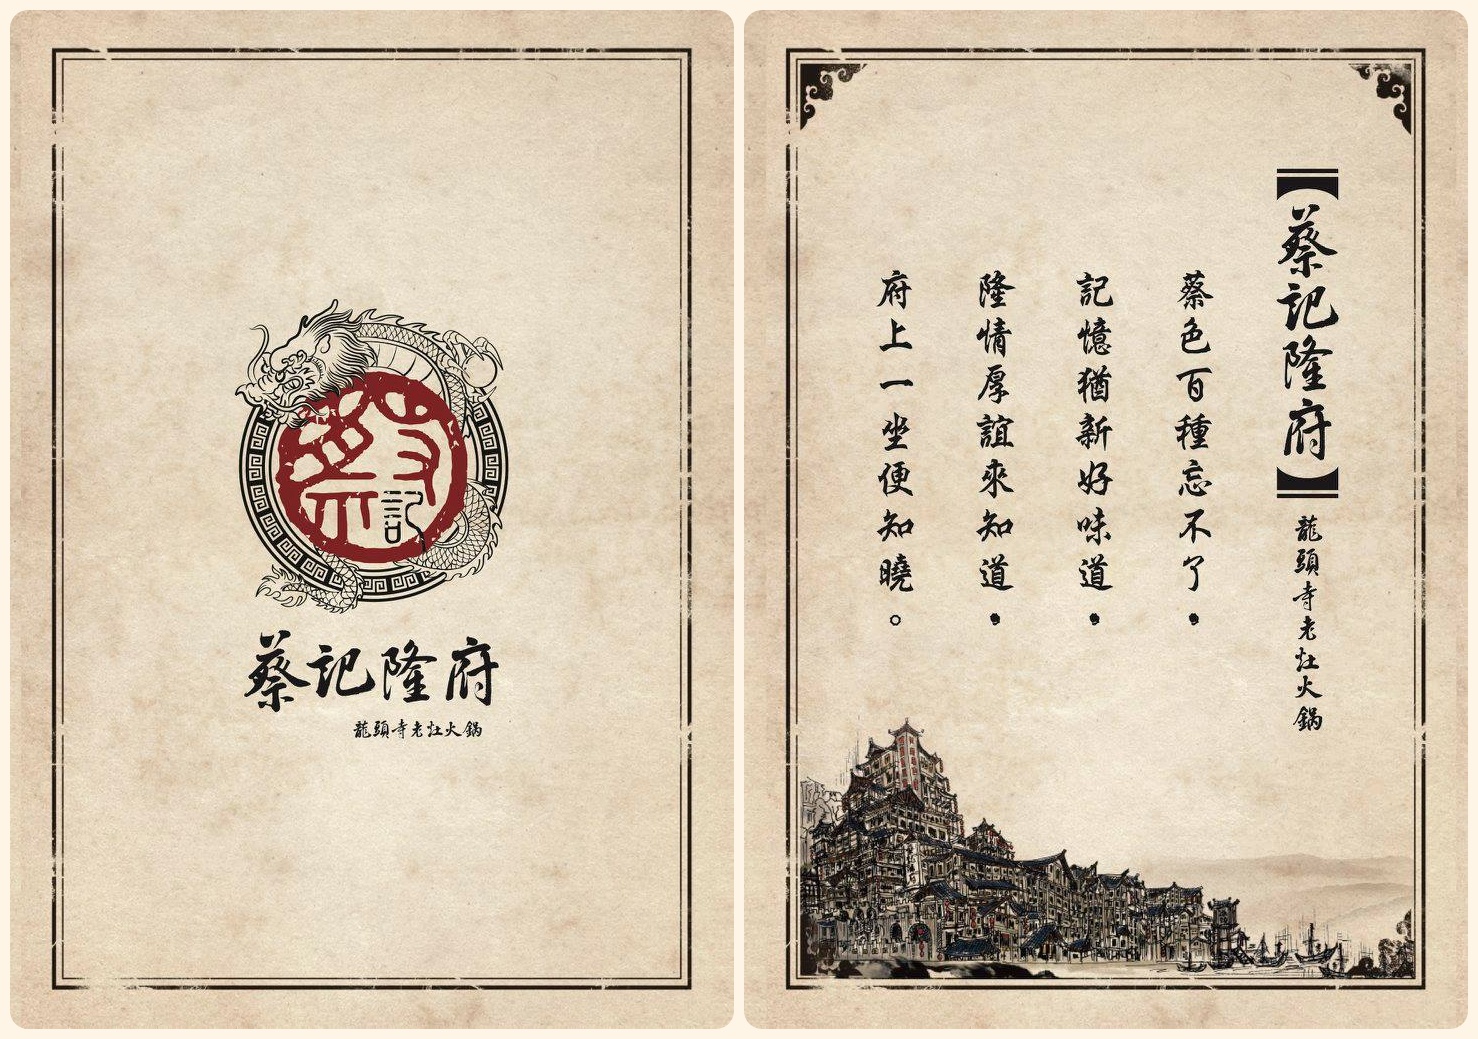 蔡記
蔡記隆府
龍頭寺老灶火鍋
【蔡記隆府】
龍頭寺老灶火鍋
蔡色百種忘不了，
記憶猶新好味道，
隆情厚誼來知道，
府上一坐便知曉。